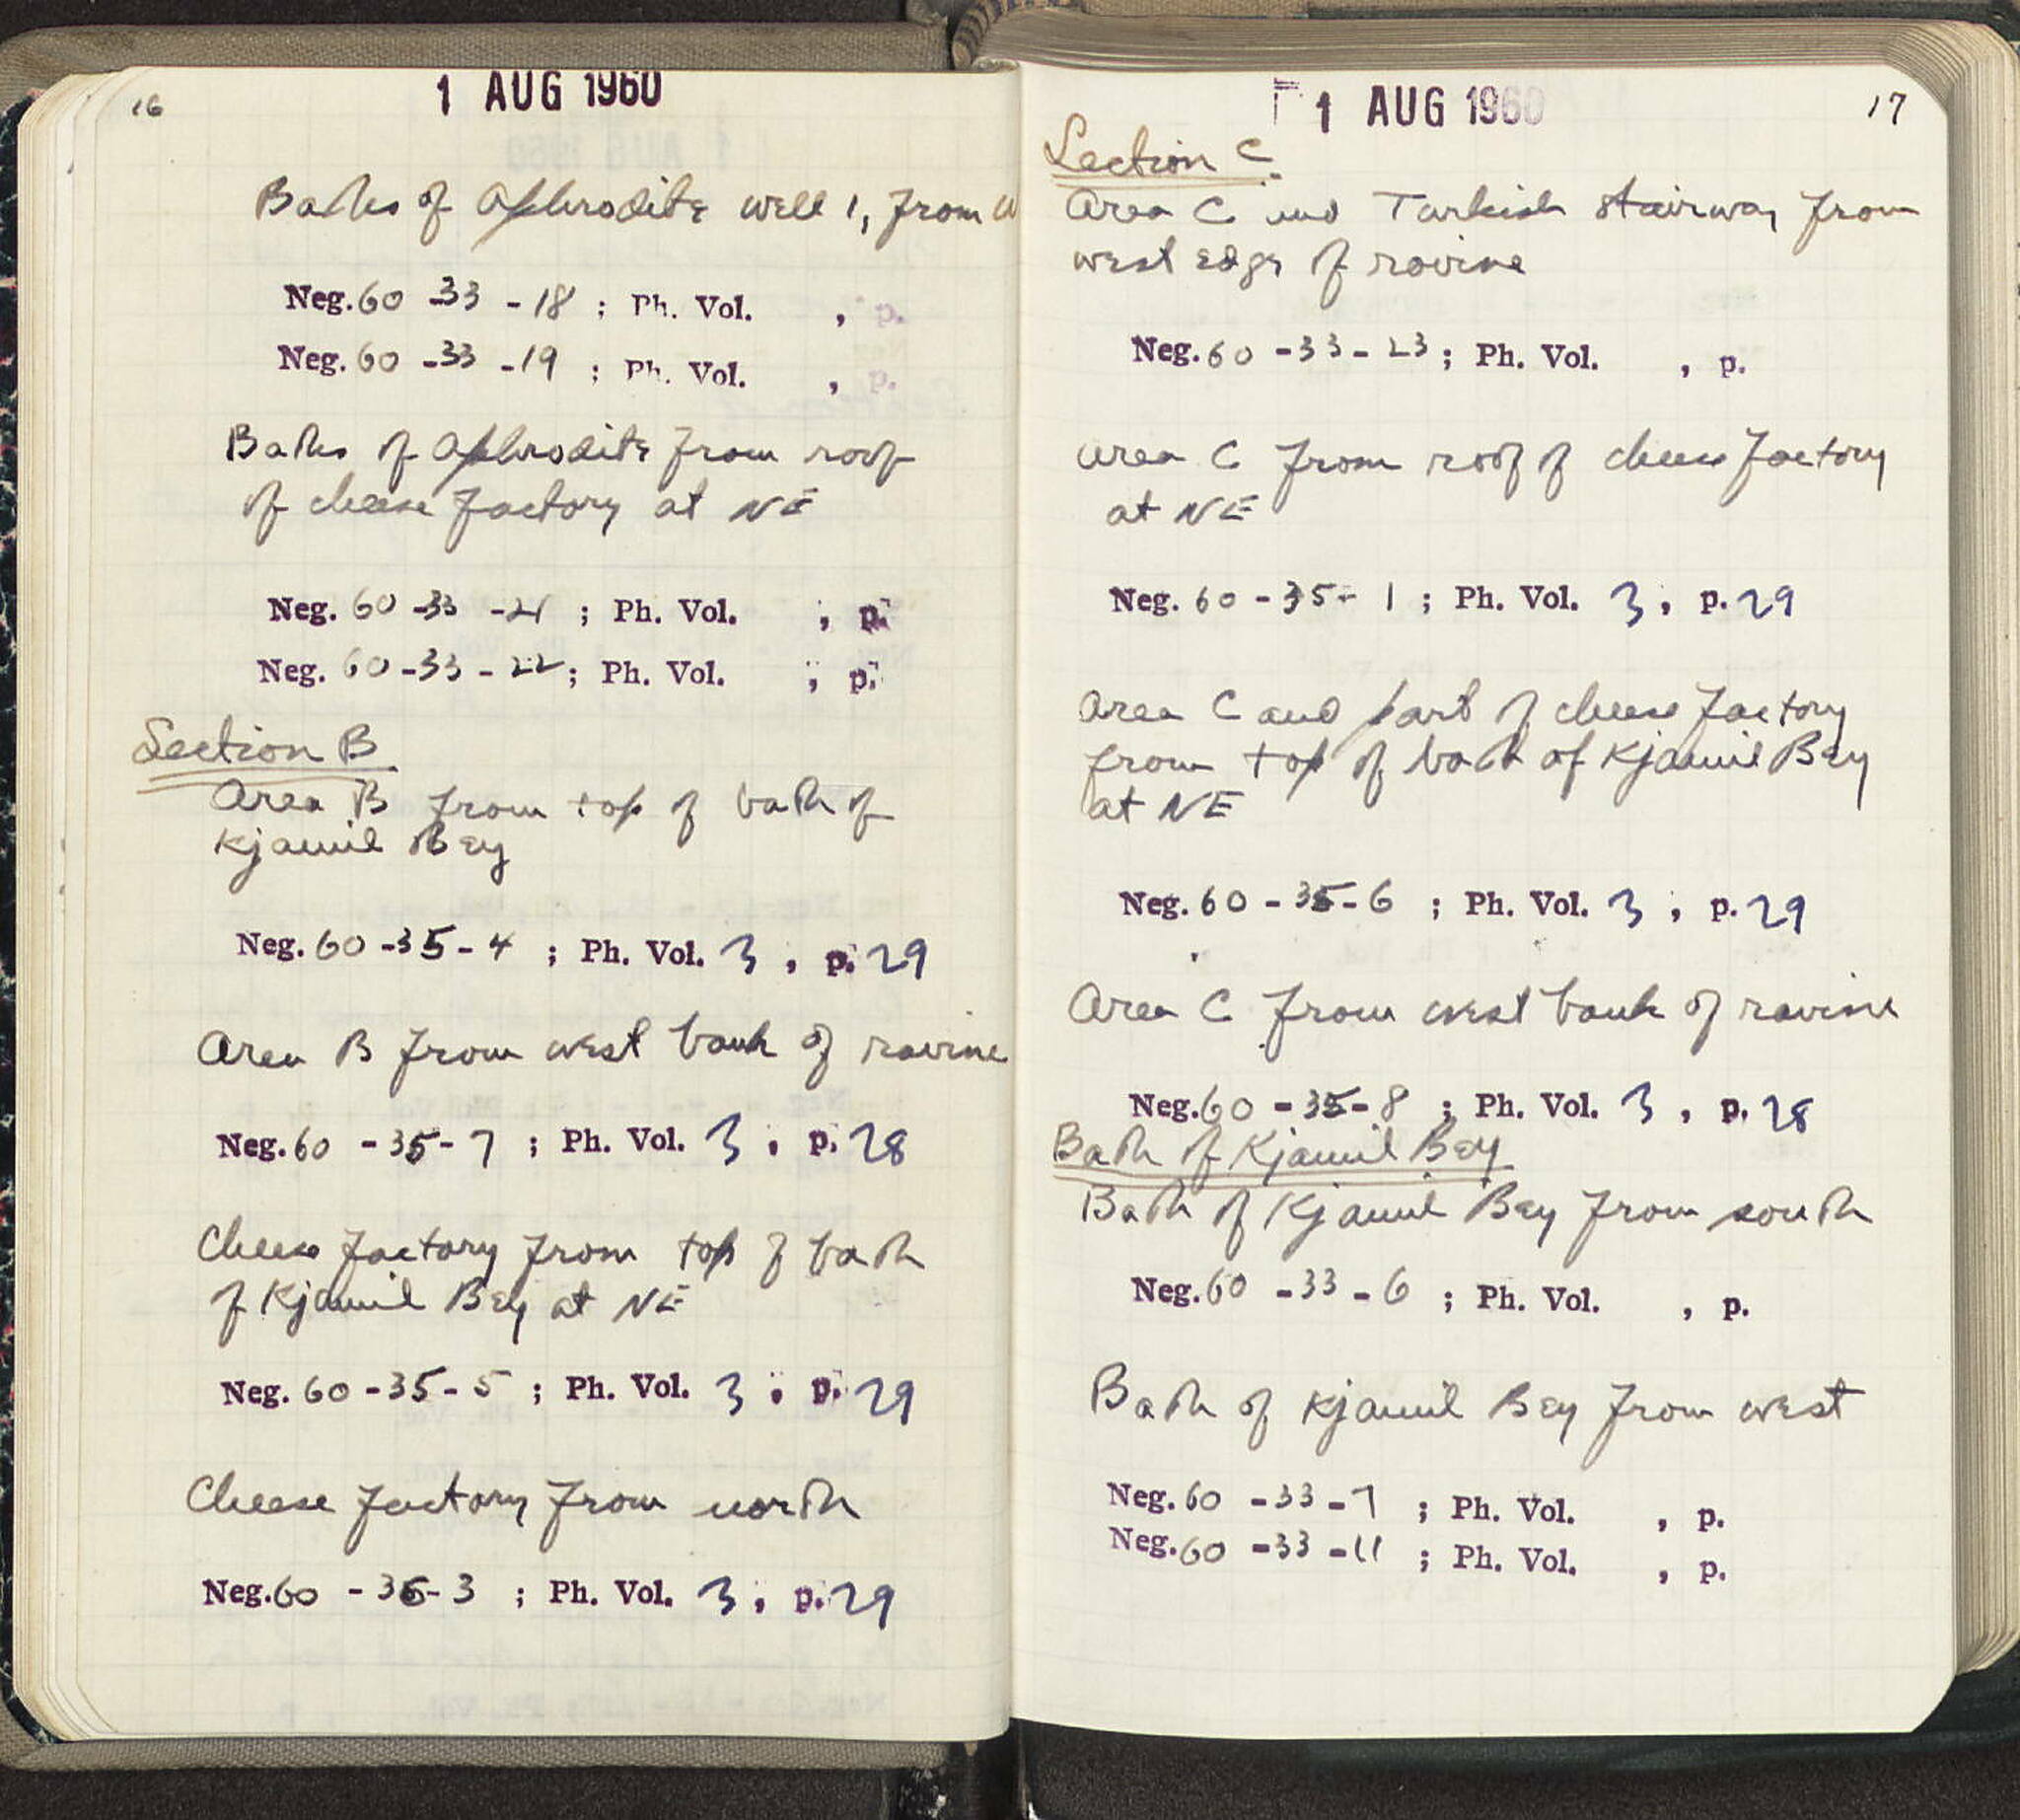 16
1 AUG 1960
Baths of Aphrodite well 1, from W
Neg. 60 -33 -18 ; Ph. Vol. , p.
Neg. 60 -33 -19 ; Ph. Vol. , p.
Baths of Aphrodite from roof
of cheese factory at NE
Neg. 60 -33 -21 ; Ph. Vol. , p.
Neg. 60 -33 - 22 ; Ph. Vol. , p.
Section B
Area B from top of bath of
Kjamil Bey
Neg. 60 -35 - 4 ; Ph. Vol. 3 , p. 29
Area B from west bank of ravine
Neg. 60 - 35 - 7 ; Ph. Vol. 3 , p. 28
Cheese factory from top of bath
of Kjamil Bey at NE
Neg. 60 - 35 - 5 ; Ph. Vol. 3 , p. 29
Cheese factory from north
Neg. 60 - 35 - 3 ; Ph. Vol. 3 , p. 29
1 AUG 1960
17
Section C
Area C and Turkish stairway from
west edge of ravine
Neg. 60 - 33 - 23 ; Ph. Vol. , p.
Area C from roof of cheese factory
at NE
Neg. 60 - 35 - 1 ; Ph. Vol. 3 , p. 29
Area C and part of cheese factory
from top of bath of Kjamil Bey
at NE
Neg. 60 - 35 - 6 ; Ph. Vol. 3 , p. 29
Area C from west bank of ravine
Neg. 60 - 35 - 8 ; Ph. Vol. 3 , p. 28
Bath of Kjamil Bey
Bath of Kjamil Bey from south
Neg. 60 - 33 - 6 ; Ph. Vol. , p.
Bath of Kjamil Bey from west
Neg. 60 - 33 - 7 ; Ph. Vol. , p.
Neg. 60 - 33 - 11 ; Ph. Vol. , p.